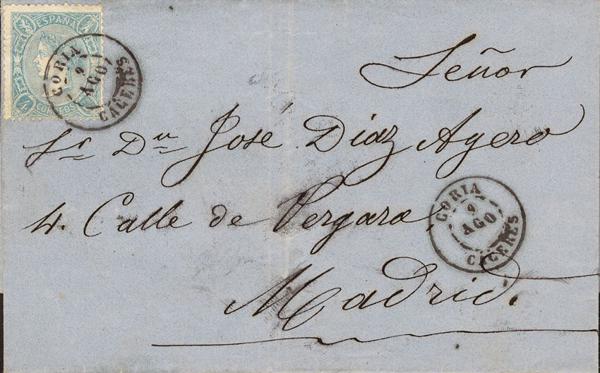 ESPAÑA
CORIA
9
AGO
CACERES
Señor
Sr. Dn José Diaz Agero
4. Calle de Vergara
CORIA
9
AGO
CACERES
Madrid.